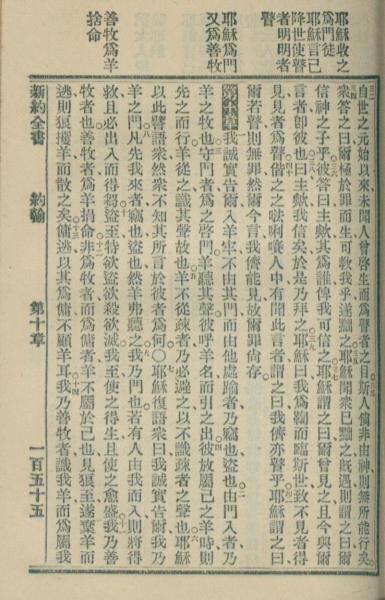 耶穌收之
爲門徒
耶穌言己
降世使瞽
者明明者
瞽
自世之元始以來未聞人曾啓生而爲瞽者之目斯人倘非由神則無所能行矣
衆答之曰爾極於罪而生可教我乎遂黜之耶穌聞衆已黜之旣遇則謂之曰爾
信神之子乎彼答曰主歟其爲誰俾我可信之耶穌謂之曰爾曾見之且今與爾
言者卽彼也曰主歟我信矣於是乃拜之耶穌曰我爲鞫而臨斯世致不見者得
見見者爲瞽偕之之 唎 人中有聞此言者謂之曰我儕亦瞽乎耶穌謂之曰
爾若瞽則無罪然爾今言我儕能見故爾罪尙存
耶穌爲門
又爲善牧
第十章 我誠實告爾入羊牢不由其門而由他處踰者乃竊也盜也由門入者乃
羊之牧也守門者爲之啓門羊聽其聲彼呼羊名而引之出彼放屬己之羊時則
先之而行羊從之識其聲故也羊不從疎者乃必避之以不識疎者之聲也耶穌
以此譬語衆然衆不知其所言於彼者爲何○耶穌復語衆曰我誠實告爾我乃
羊之門凡先我來者竊也盜也然羊弗聽之我乃門也若有人由我而入則將得
救且必出入而得芻盜至特欲盜欲殺欲滅我至使之得生且使之愈盛我乃善
善牧爲羊
捨命
牧者也善牧者爲羊捐命非爲牧者而爲傭者羊不屬於己也見狼至遂棄羊而
逃則狼攫羊而散之矣傭逃以其爲傭不顧羊耳我乃善牧者識我羊而爲屬我
新約全書 約翰 第十章 一百五十五